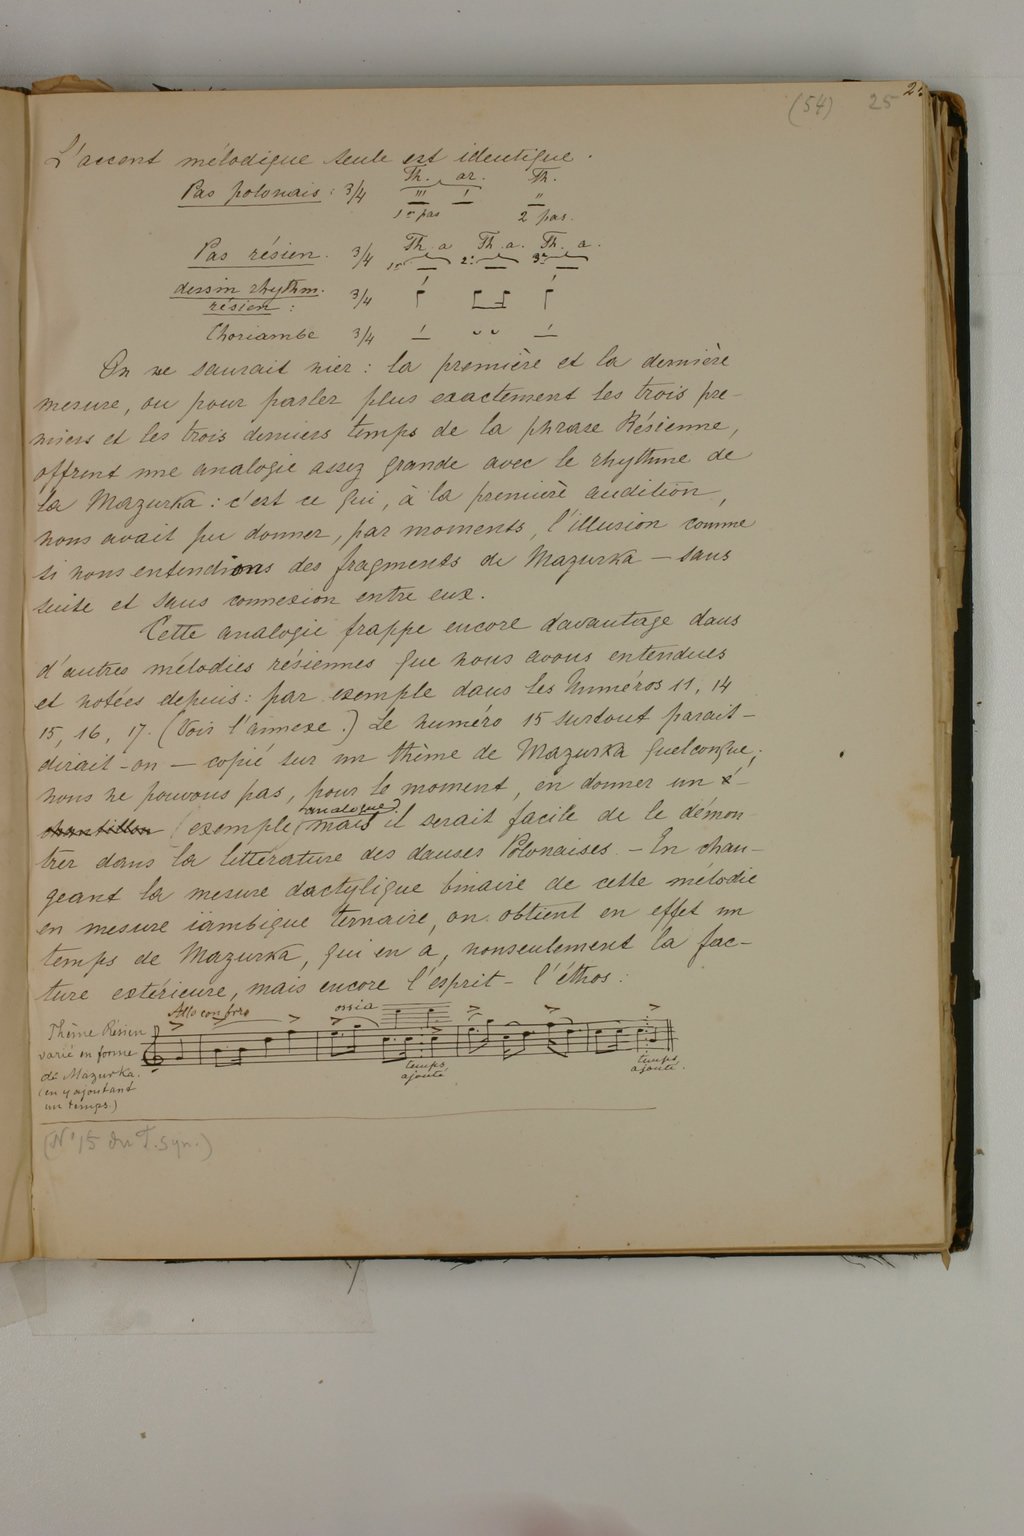 (54) 25
L'accent mélodique seule est identique.
Th. ar. Th.
Pas polonais : 3/4
1er pas 2 pas.
Th. a Th. a. Th. a.
Pas résien. 3/4 1er 2e 3e
dessin rhythm.
résien : 3/4
Choriambe 3/4
On ne saurait nier : la première et la dernière
mesure, ou pour parler plus exactement les trois pre-
miers et les trois derniers temps de la phrase Résienne,
offrent une analogie assez grande avec le rhythme de
la Mazurka : c'est ce qui, à la première audition,
nous avait pu donner, par moments, l'illusion comme
si nous entendions des fragments de Mazurka — sans
suite et sans connexion entre eux.
Cette analogie frappe encore davantage dans
d'autres mélodies résiennes que nous avons entendues
et notées depuis : par exemple dans les Numéros 11, 14
15, 16, 17. (Voir l'annexe.) Le numéro 15 surtout parait –
dirait-on — copié sur un thème de Mazurka quelconque ;
nous ne pouvons pas, pour le moment, en donner un é-
chantillon (exemple analogue) mais il serait facile de le démon
trer dans la littérature des danses Polonaises. – En chan-
geant la mesure dactylique binaire de cette mélodie
en mesure iämbique ternaire, on obtient en effet un
temps de Mazurka, qui en a, nonseulement la fac-
ture extérieure, mais encore l'esprit – l'éthos :
Allo con foro ossia
Thème Résien
varié en forme
de Mazurka.
(en y ajoutant
un temps.)
temps
ajouté
temps
ajouté.
(No 15 du T. Syn.)